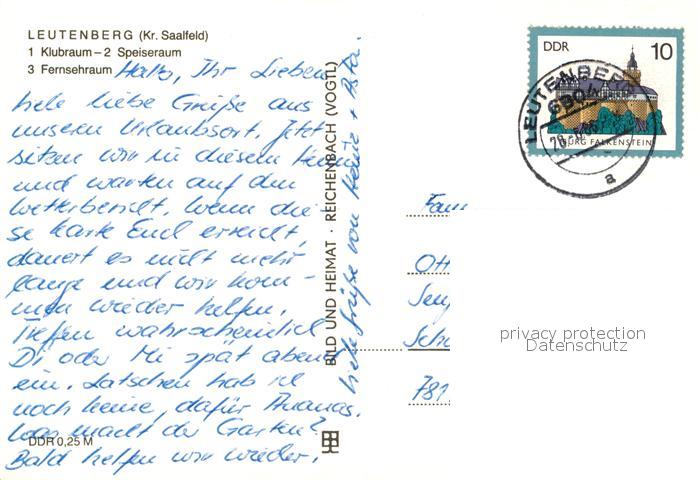 LEUTENBERG (Kr. Saalfeld)
1 Klubraum – 2 Speiseraum
3 Fernsehraum
Hallo, Ihr Lieben
viele liebe Grüße aus
unserem Urlaubsort. Jetzt
sitzen wir in diesem
und warten auf den
Wetterbericht. Wenn die-
se Karte Euch erreicht,
dauert es nicht mehr
lange und wir kom-
men wieder helfen.
Treffen wahrscheinlich
Di oder Mi spät abends
ein. Latschen hab ich
noch keine, dafür Ananas.
Was macht der Garten?
Bald helfen wir wieder.
DDR 0,25 M
Viele Grüße von Heinz +
BILD UND HEIMAT · REICHENBACH (VOGTL)
DDR 10
BURG FALKENSTEIN
LEUTENBERG
6904
a
Fam
Ott
Sen
Sch
781
privacy protection
Datenschutz